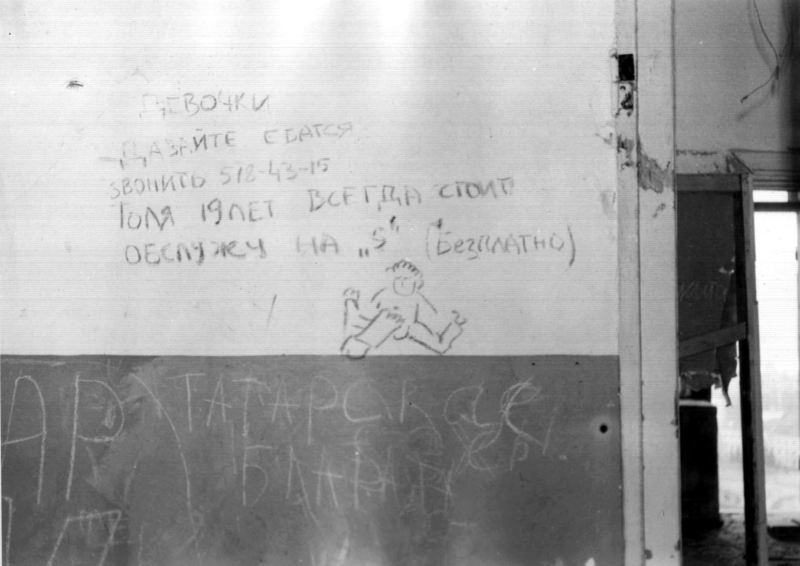 ДЕВОЧКИ
ДАВАЙТЕ ЕБАТСЯ
ЗВОНИТЬ 518-43-15
ТОЛЯ 19 ЛЕТ ВСЕГДА СТОИТ
ОБСЛУЖУ НА „5“ (БЕЗПЛАТНО)
АР ТАТАРСКАЕ